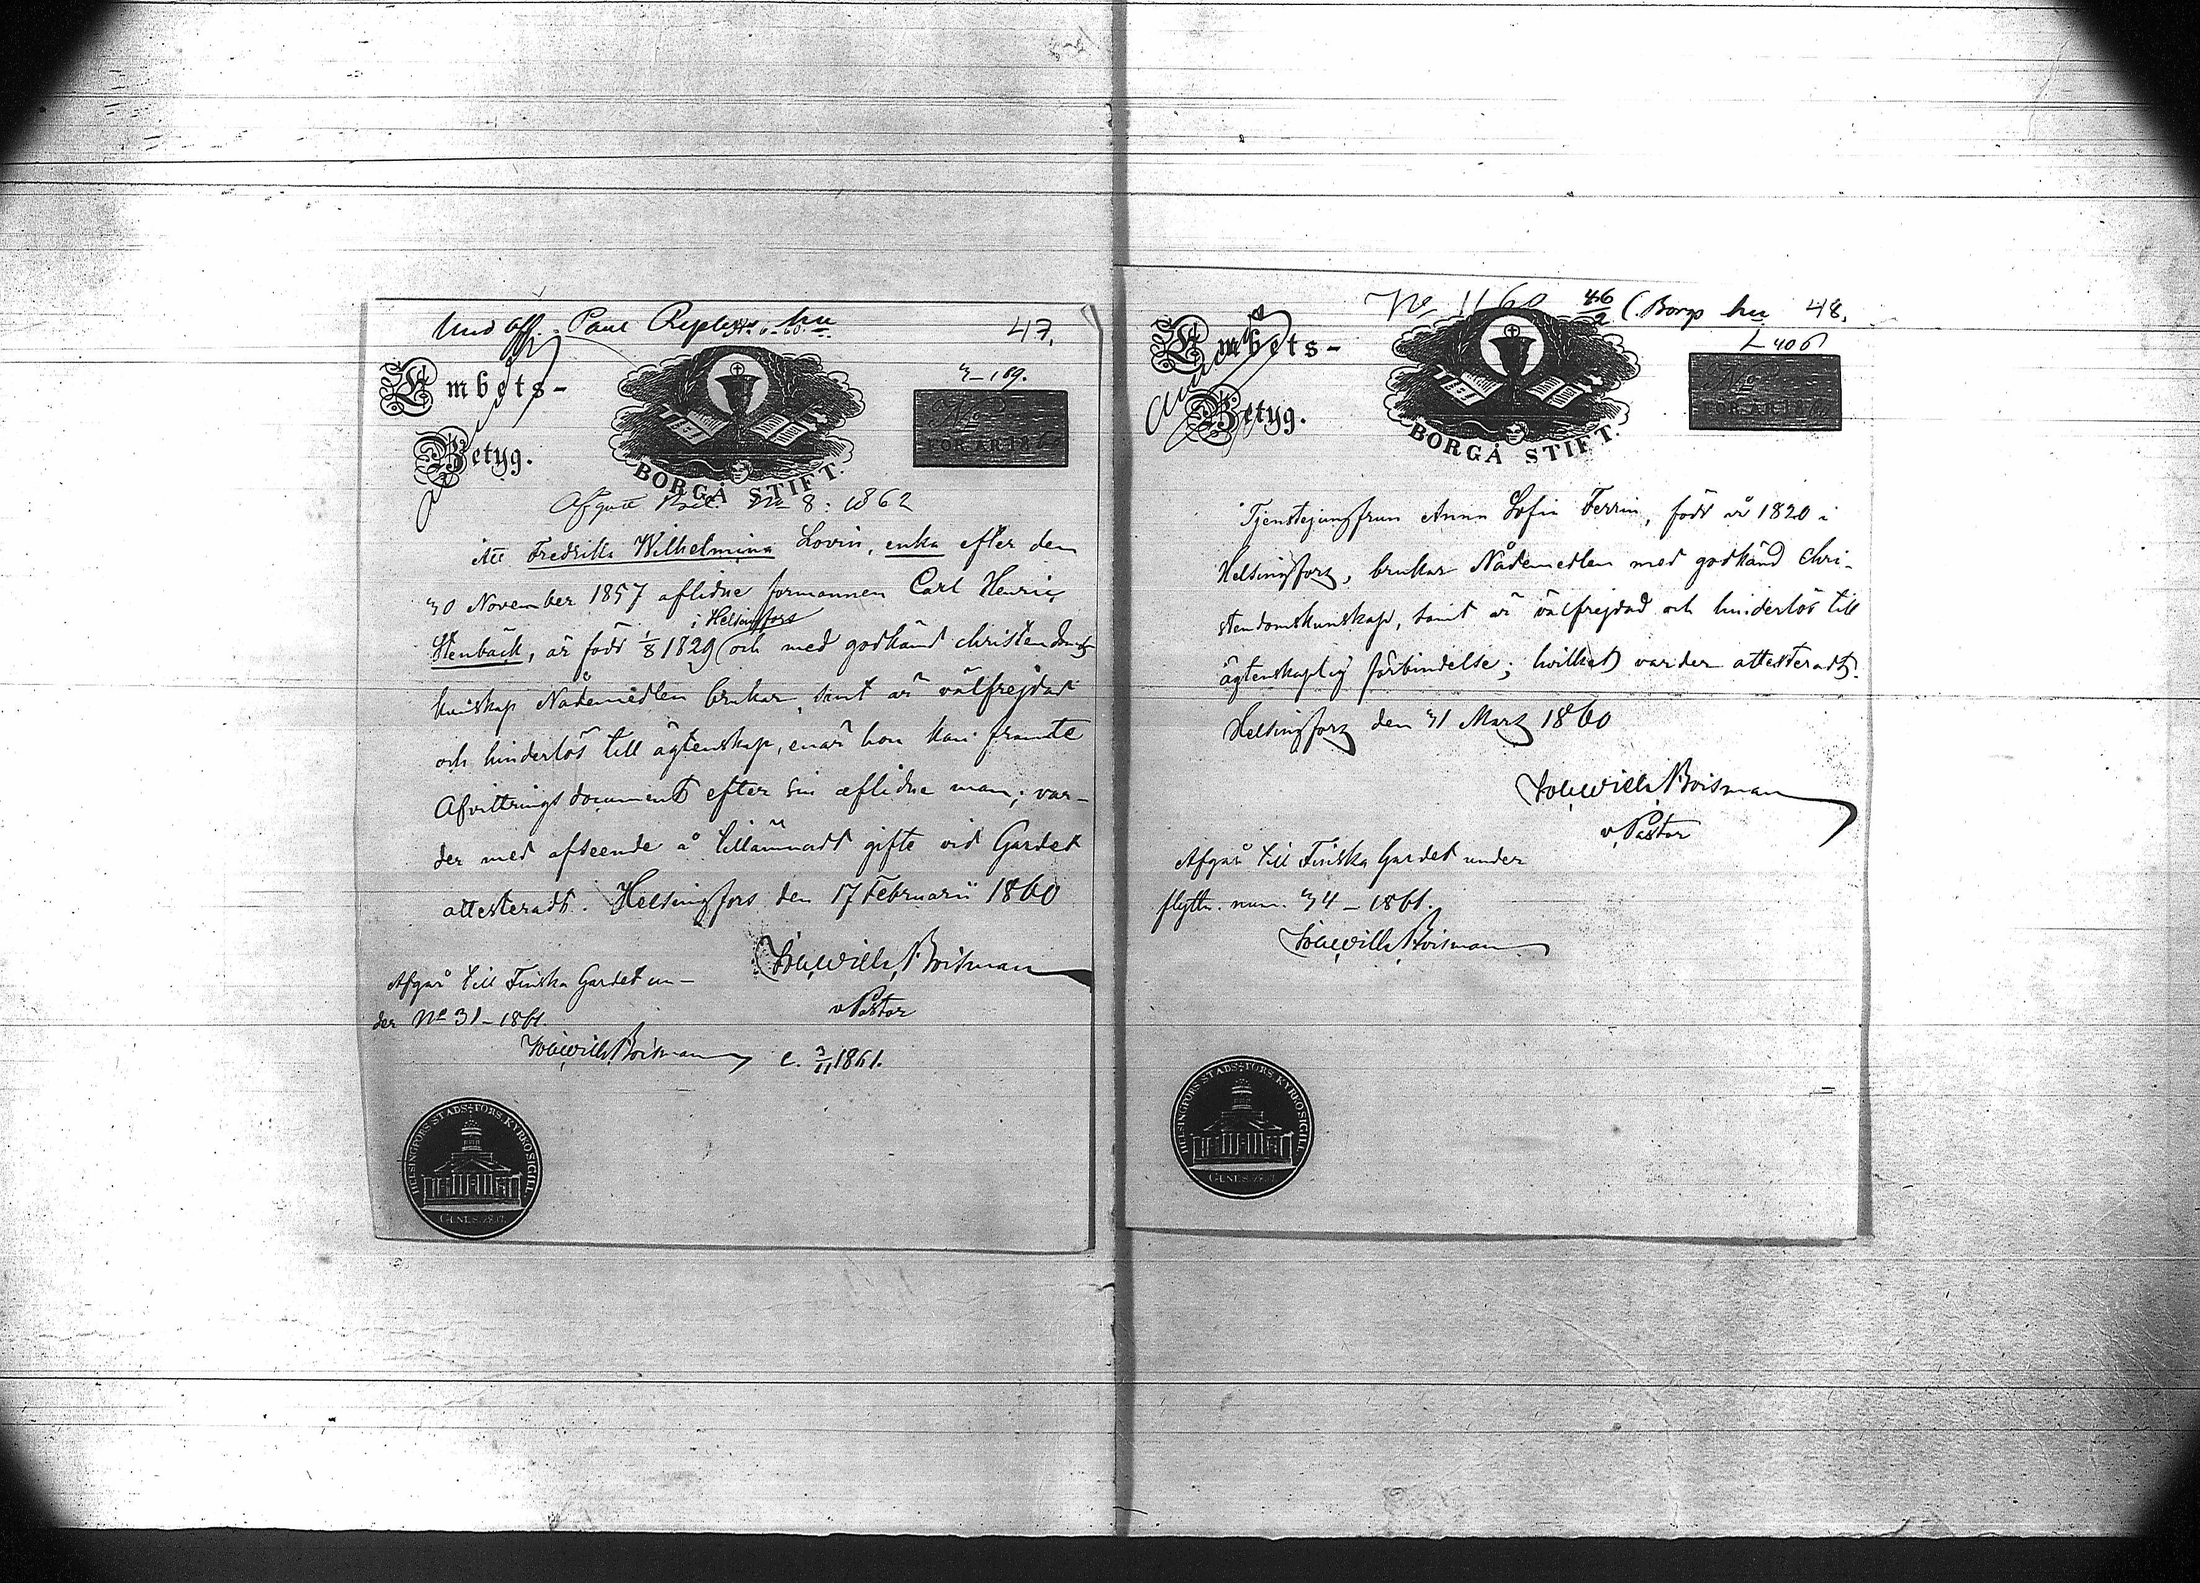 Und off. Paul Replers hu
47.
Embets-
Betyg.
BORGÅ STIFT.
FÖR ÅR 1860
Afgått Bet. No 8: 1862
Att Fredrika Wilhelmina Lovin, enka efter den
30 November 1857 aflidne formannen Carl Henric
i Helsingfors
Stenbäck, är född 1/8 1829 och med godkänd christendoms
kunskap Nådemedlen brukar, samt är välfrejdad
och hinderlös till ägtenskap, enär hon kan framte
Afvittringsdocument efter sin aflidne man; var-
der med afseende å tillämnadt gifte vid Gardet
attesteradt. Helsingfors den 17 Februarii 1860
Joh. Wilh. Boisman
v Pastor
Afgår till Finska Gardet un-
der No 31-1861.
Joh. Wilh. Boisman
e. 3/11 1861.
HELSINGFORS STADS-FÖRS. KYRKOSIGILL.
No 1160 46/2 (Borgs hu 48.
L 406
Embets-
Betyg.
BORGÅ STIFT.
FÖR ÅR 1860
Tjenstejungfrun Anna Sofia Ferrin, född år 1820 i
Helsingfors, brukar Nådemedlen med godkänd chri-
stendomskunskap, samt är välfrejdad och hinderlös till
ägtenskaplig förbindelse; hvilket varder attesteradt.
Helsingfors den 31 Mars 1860
Joh. Wilh. Boisman
v Pastor
Afgår till Finska Gardet under
flyttn. num. 34-1861.
Joh. Wilh. Boisman
HELSINGFORS STADS-FÖRS. KYRKOSIGILL.